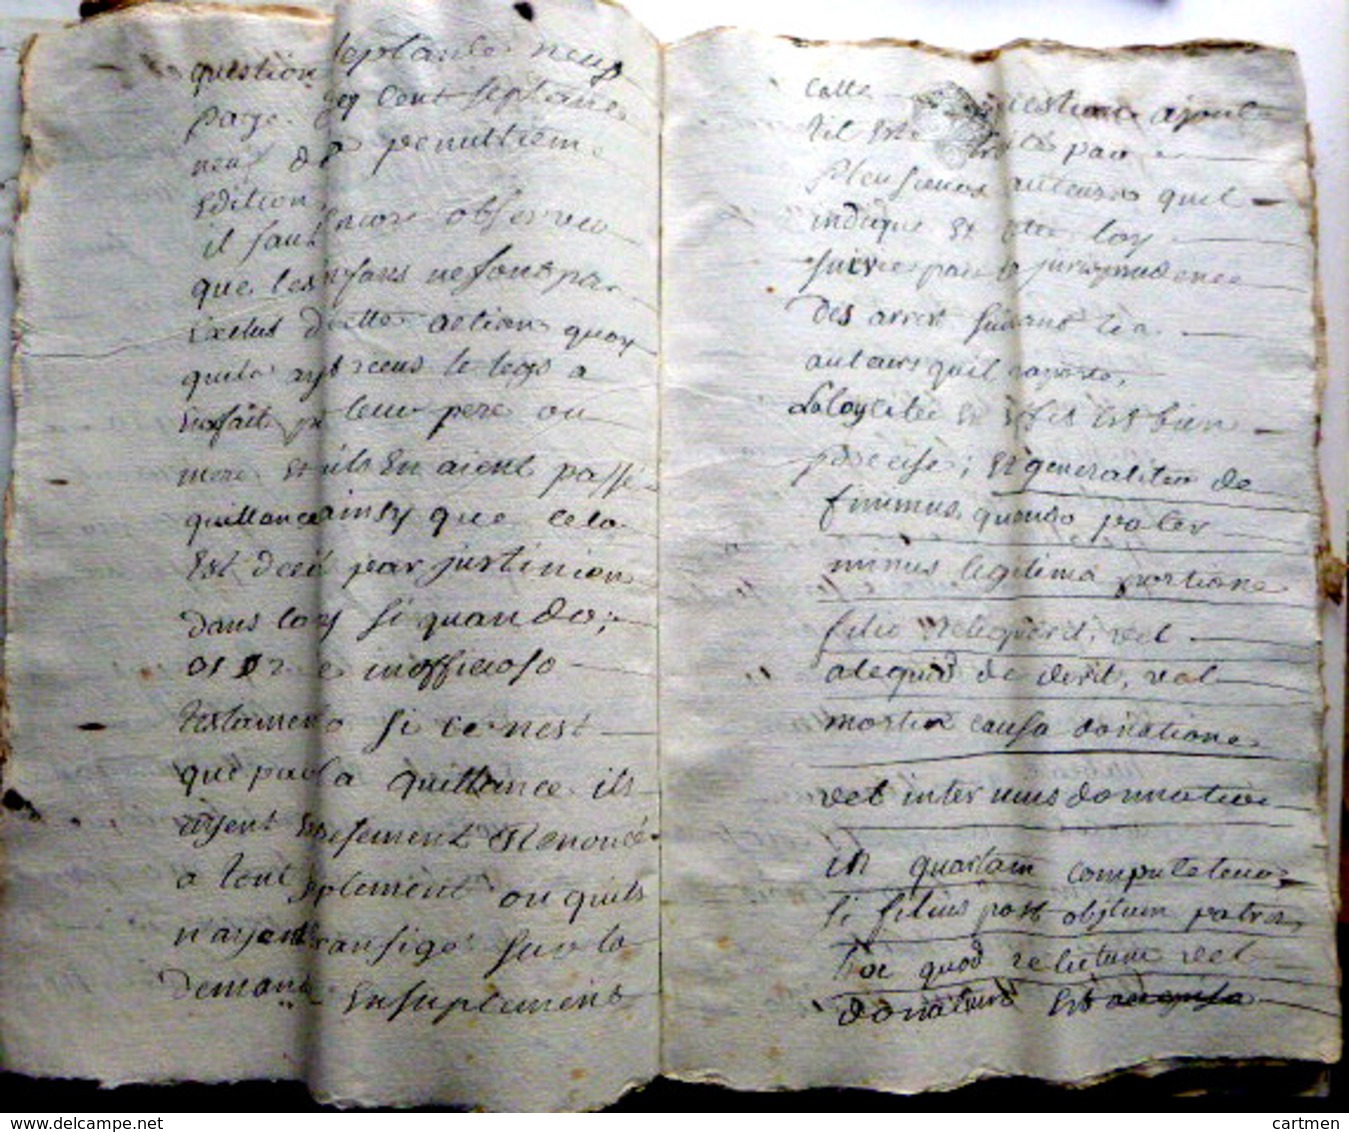 question septante neuf
page cent septante
neuf de penultieme
Edition,
il faut encore observer
que les enfans ne sont pas
Exclus d cette action quoy
quils ayt receus le legs a
Eux fait p leur pere ou
mere Et ils En aient passé
quittance ainsy que cela
Est decid par justinien
dans loy si quando;
de inofficioso
testamento si ce nest
que par la quittance ils
ayent Expressement Renoncé
a tout suplement ou quils
n'ayent transigé sur la
demand En suplement
Cette question ajout
til Est traitée par
Plusieurs auteurs quil
indique Et cette loy
suivie par la jurisprudence
des arrest suivant les
auteurs quil raporte,
La loy citée Est bien
precise; Et generaliter de
finimus, quando pater
minus legitima portione
filio reliquerit, vel
aliquid dederit, vel
mortis causa donatione
vel inter vivos donnatione
in quartam computatione
si filius post obitum patris
hoc quod relictum vel
donatum Est
cartmen